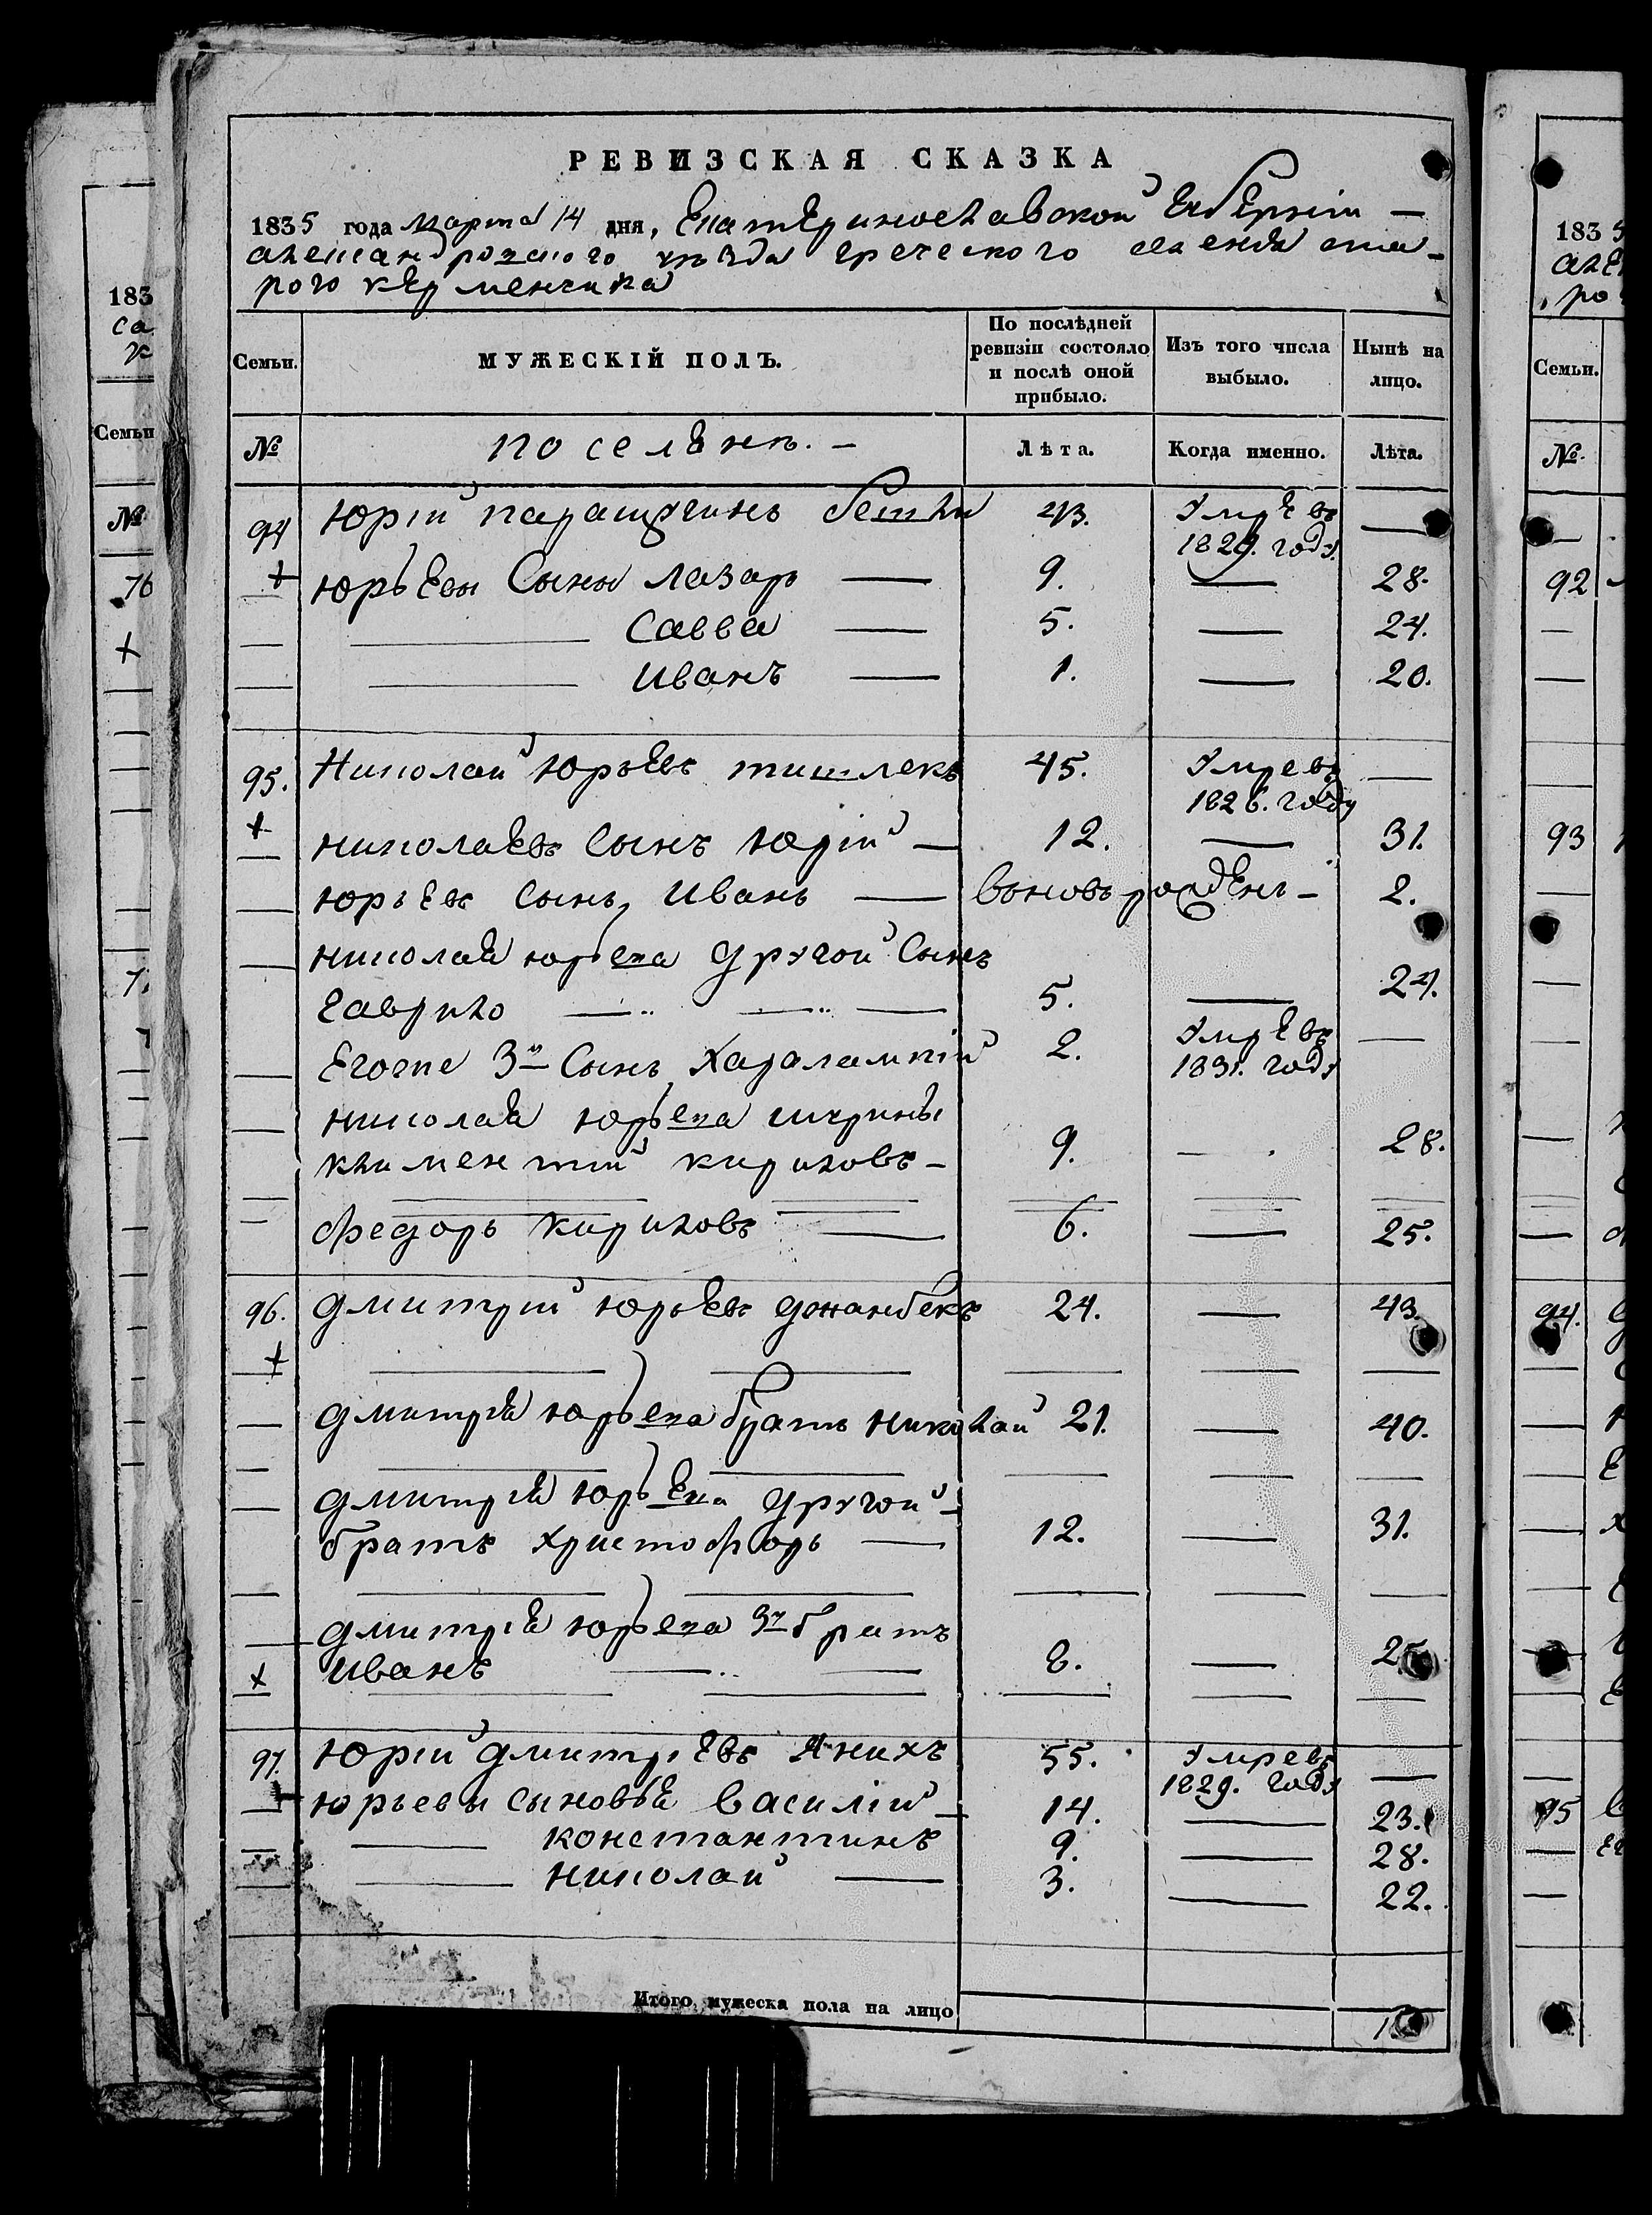 РЕВИЗСКАЯ СКАЗКА
1835 года марта 14 дня, Екатеринославской Губернiи —
александровскаго уѣзда греческого селенiя ста-
рого керменчика
Семьи.
МУЖЕСКIЙ ПОЛЪ.
По послѣдней ревизiи состояло и послѣ оной прибыло.
Изъ того числа выбыло.
Нынѣ на лицо.
№
поселянъ. —
Лѣта.
Когда именно.
Лѣта.
94 Юрiй паращухинъ 43. Умрѣ въ —
1829. году.
+ юрьевы Сыны лазарь — 9. — 28.
— Савва — 5. — 24.
— Иванъ — 1. — 20.
95. Николай Юрьевъ тишлекъ 45. Умре въ —
1826. году
+ николаевъ Сынъ Юрiй — 12. — 31.
— юрьевъ Сынъ, Иванъ — вьновь рожденъ — 2.
— николая юрьева другой Сынъ
гаврило — 5. — 24.
— Егоже 3й Сынъ Харалампiй 2. Умрѣ въ —
1831. году
— николая юрьева шурины
климентiй кириловъ — 9. — 28.
— федоръ кириловъ — 6. — 25.
96. дмитрiй юрьевъ джанбекъ 24. — 43.
+
— дмитрiя юрьева братъ николай 21. — 40.
— дмитрiя юрьева другой —
братъ христофоръ — 12. — 31.
— дмитрiя юрьева 3й братъ
+ иванъ — 8. — 25
97. Юрiй дмитрiевъ Янихъ 55. Умре въ —
1829. году
+ юрьевы сыновья Василiй — 14. — 23.
— константинъ 9. — 28.
— николай — 3. — 22.
Итого мужеска пола на лицо
183
са
Семьи
№
76
+
1835
Семьи.
№
92
93
94.
95